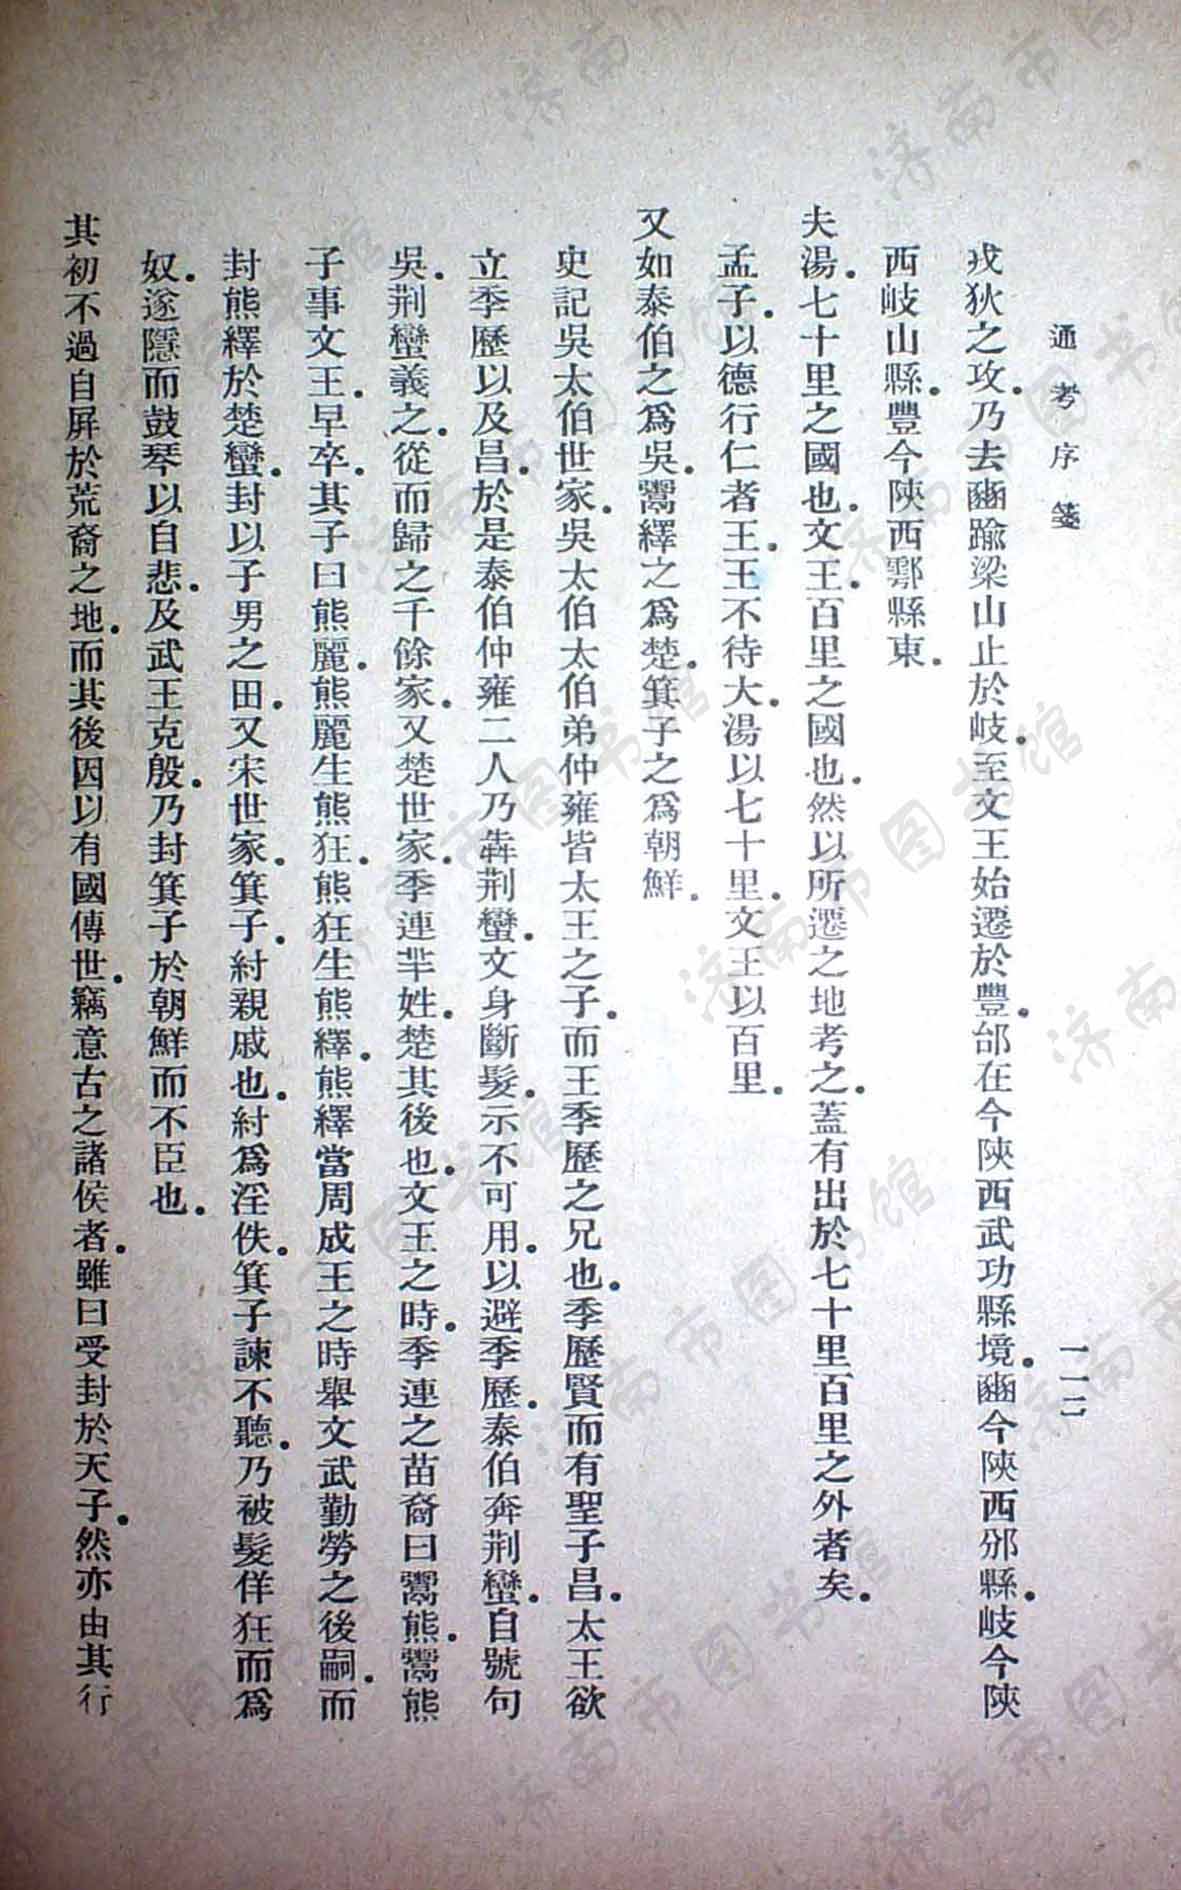 通考序箋
一一二
戎狄之攻。乃去豳踰梁山止於岐。至文王始遷於豐。邰在今陝西武功縣境。豳今陝西邠縣。岐今陝
西岐山縣。豐今陝西鄠縣東。
夫湯。七十里之國也。文王。百里之國也。然以所遷之地考之。蓋有出於七十里百里之外者矣。
孟子。以德行仁者王。王不待大。湯以七十里。文王以百里。
又如泰伯之爲吳。鬻繹之爲楚。箕子之爲朝鮮。
史記吳太伯世家。吳太伯太伯弟仲雍皆太王之子。而王季歷之兄也。季歷賢而有聖子昌。太王欲
立季歷以及昌。於是泰伯仲雍二人乃犇荆蠻。文身斷髮。示不可用。以避季歷。泰伯奔荆蠻。自號句
吳。荆蠻義之。從而歸之千餘家。又楚世家。季連羋姓。楚其後也。文王之時。季連之苗裔曰鬻熊。鬻熊
子事文王。早卒。其子曰熊麗。熊麗生熊狂。熊狂生熊繹。熊繹當周成王之時舉文武勤勞之後嗣。而
封熊繹於楚蠻。封以子男之田。又宋世家。箕子。紂親戚也。紂爲淫佚。箕子諫不聽。乃被髮佯狂而爲
奴。遂隱而鼓琴以自悲。及武王克殷。乃封箕子於朝鮮而不臣也。
其初不過自屏於荒裔之地。而其後因以有國傳世。竊意古之諸侯者。雖曰受封於天子。然亦由其行
济南市图书馆